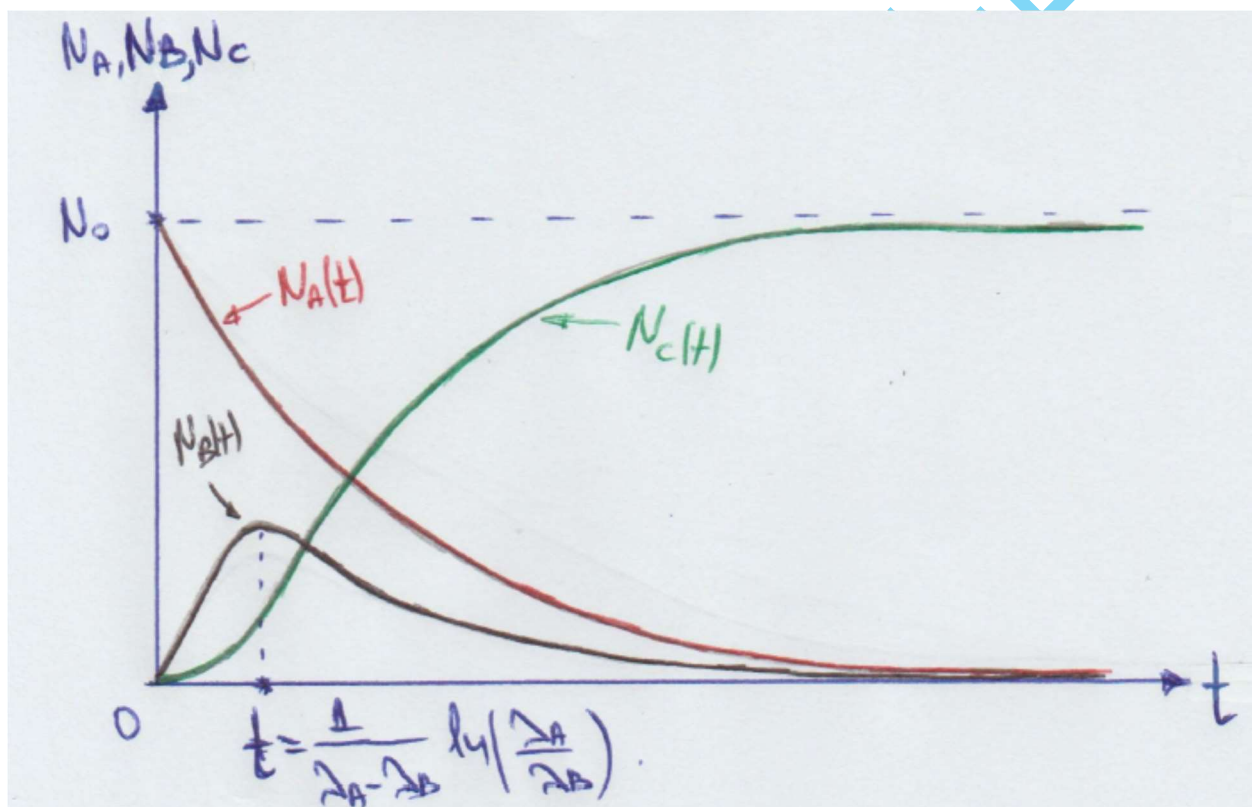 N_A, N_B, N_C
N_0
N_A(t)
N_C(t)
N_B(t)
0
t
t = 1/(λ_A - λ_B) ln(λ_A/λ_B).